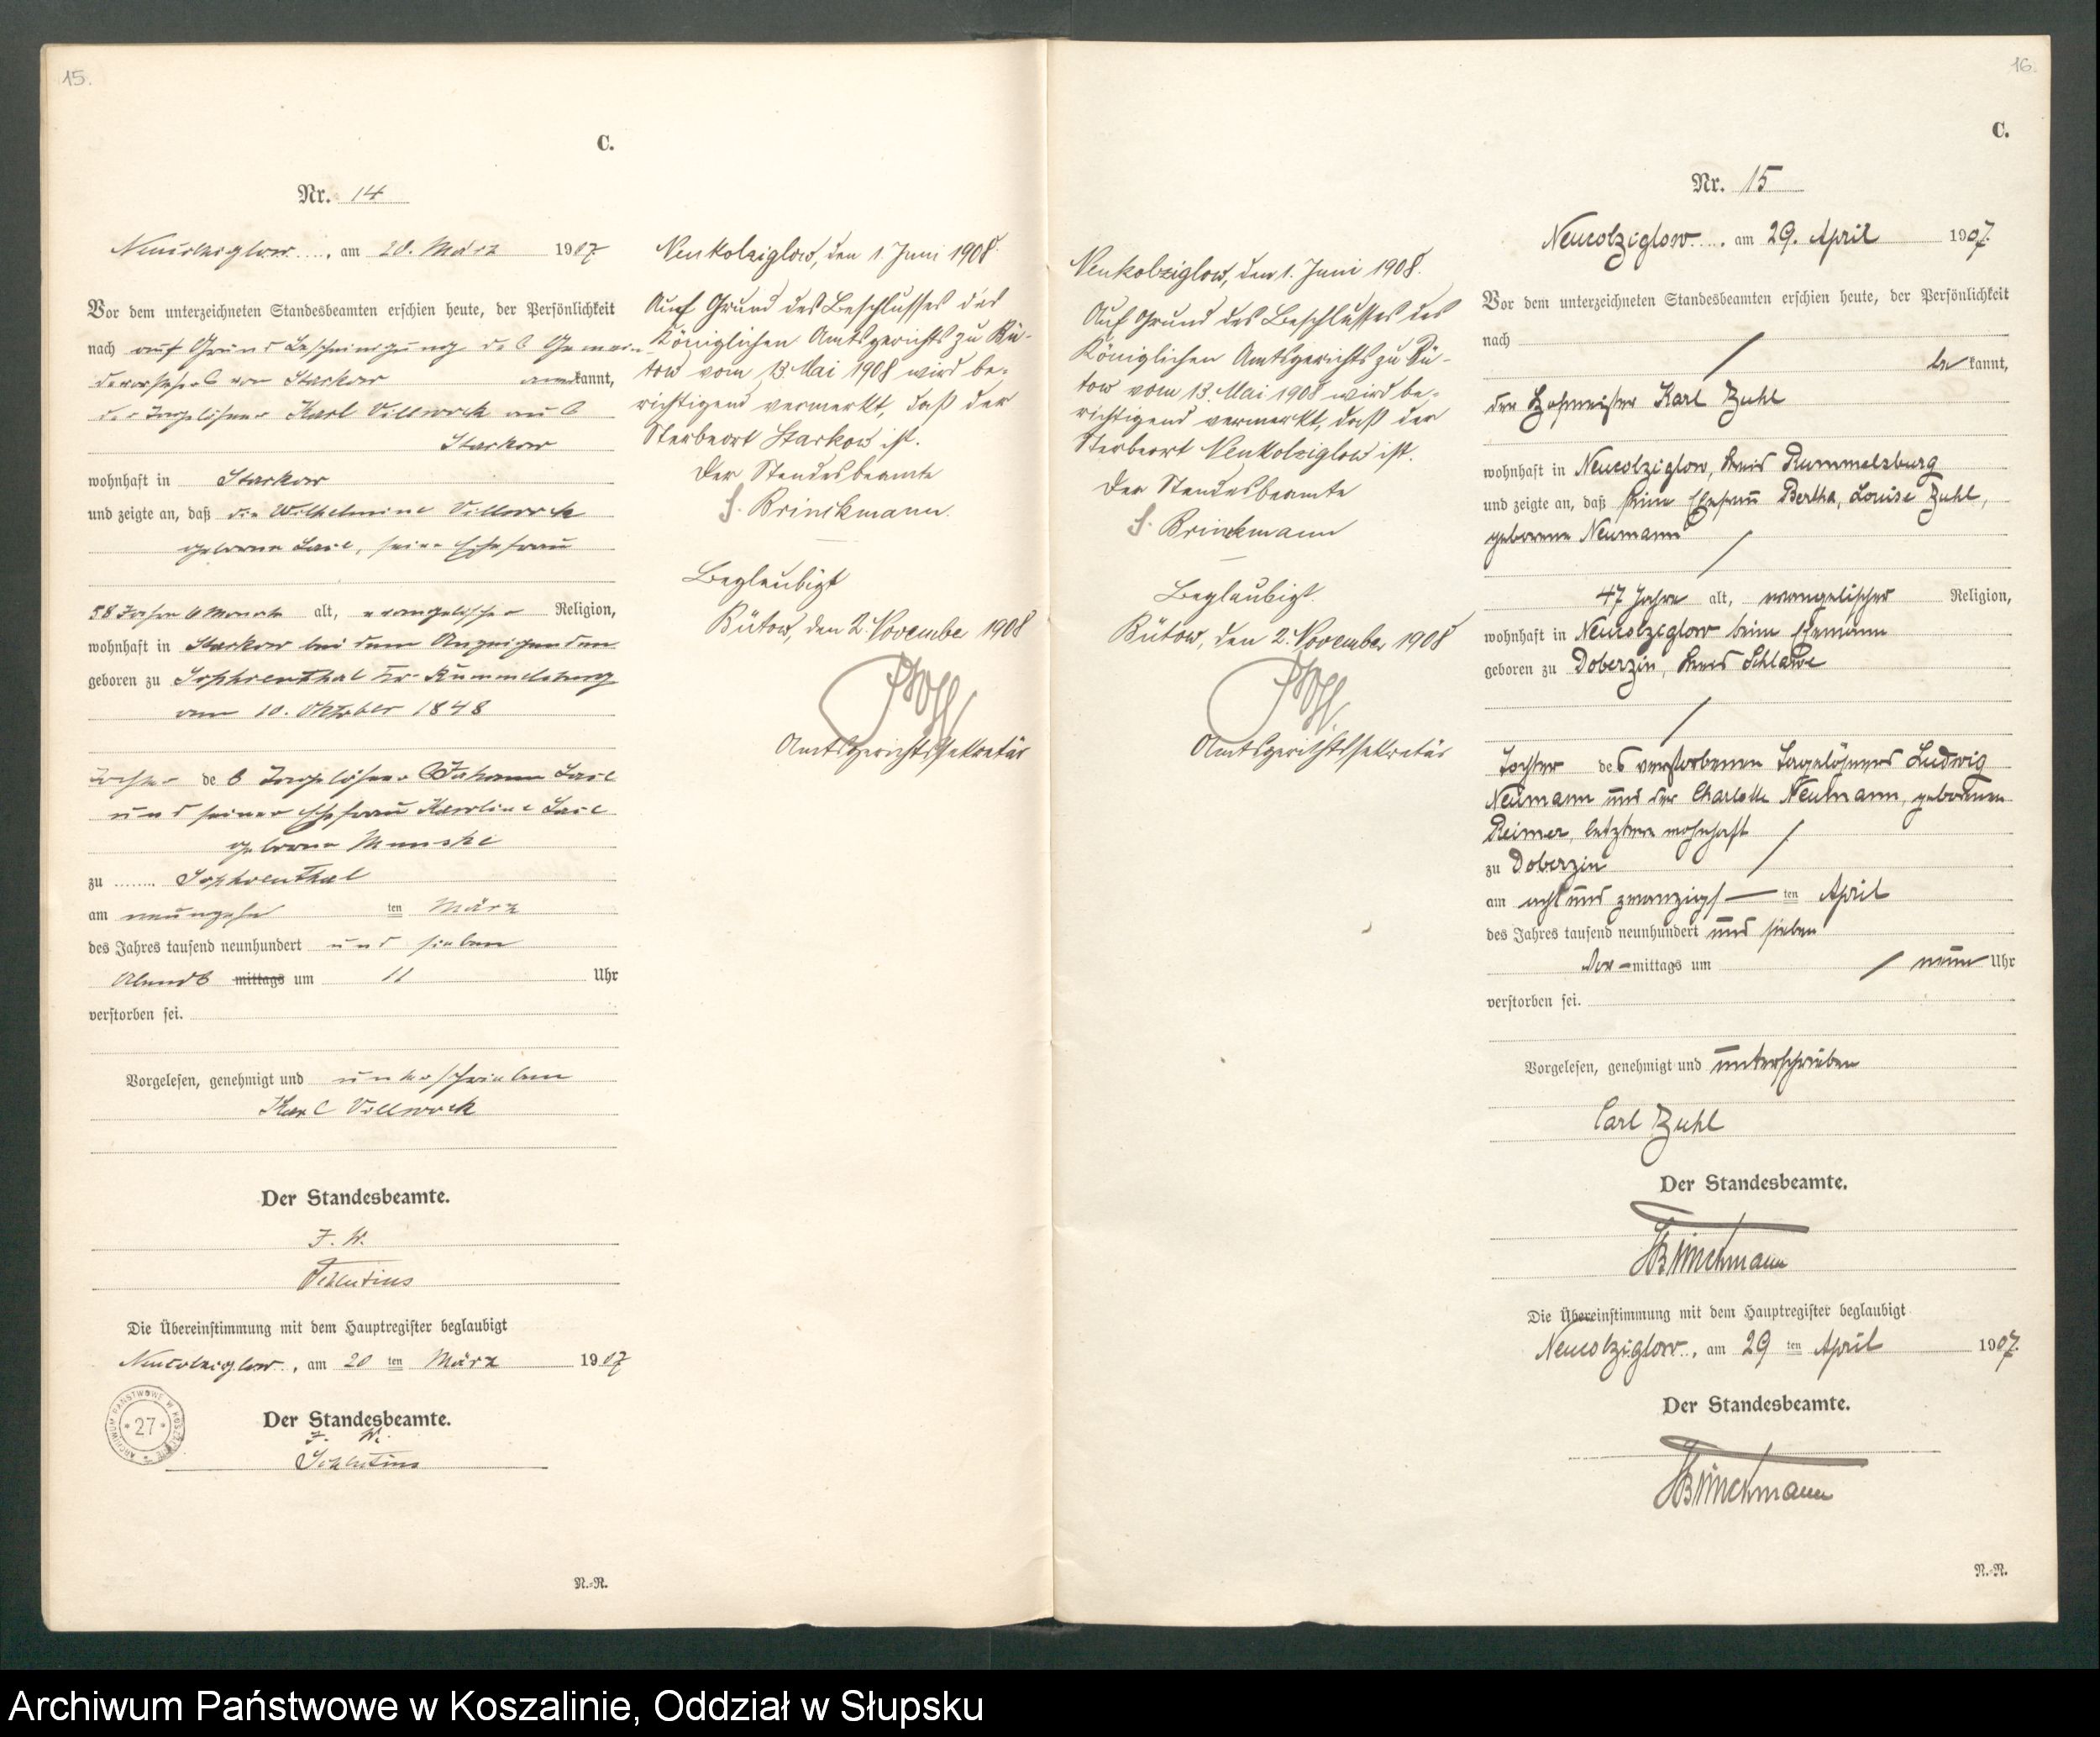 15.
C.
Nr. 14
Neucolziglow, am 20. März 1907
Vor dem unterzeichneten Standesbeamten erschien heute, der Persönlichkeit
nach auf Grund Bescheinigung des Gemein-
devorstehers von Starkow anerkannt,
der Tagelöhner Karl Villwock aus
Starkow
wohnhaft in Starkow
und zeigte an, daß die Wilhelmine Villwock
geborne, seine Ehefrau
58 Jahre 6 Monate alt, evangelischer Religion,
wohnhaft in Starkow bei dem Anzeigenden
geboren zu Sophienthal Kr. Rummelsburg
am 10. Oktober 1848
Tochter des Tagelöhners Johann
und seiner Ehefrau Karoline
geborne
zu Sophienthal
am neunzehn ten März
des Jahres tausend neunhundert und sieben
Abends mittags um 11 Uhr
verstorben sei.
Vorgelesen, genehmigt und unterschrieben
Karl Villwock
Der Standesbeamte.
J. V.
Die Übereinstimmung mit dem Hauptregister beglaubigt
Neucolziglow, am 20 ten März 1907
Der Standesbeamte.
J. V.
ARCHIWUM PAŃSTWOWE W KOSZALINIE * 27 *
N.-R.
Neukolziglow, den 1. Juni 1908.
Auf Grund des Beschlusses des
Königlichen Amtsgerichts zu Bü-
tow vom 13 Mai 1908 wird be-
richtigend vermerkt, daß der
Sterbeort Starkow ist.
Der Standesbeamte
Brinckmann.
Beglaubigt
Bütow, den 2. November 1908
Amtsgerichtssekretär
Neukolziglow, den 1. Juni 1908.
Auf Grund des Beschlusses des
Königlichen Amtsgerichts zu Bü-
tow vom 13. Mai 1908 wird be-
richtigend vermerkt, daß der
Sterbeort Neukolziglow ist.
Der Standesbeamte
Brinckmann
Beglaubigt.
Bütow, den 2. November 1908
Amtsgerichtssekretär
16.
C.
Nr. 15
Neucolziglow, am 29. April 1907.
Vor dem unterzeichneten Standesbeamten erschien heute, der Persönlichkeit
nach
bekannt,
der Hofmeister Karl Zuhl
wohnhaft in Neucolziglow, Kreis Rummelsburg
und zeigte an, daß seine Ehefrau Bertha, Louise Zuhl,
geborene Neumann
47 Jahre alt, evangelischer Religion,
wohnhaft in Neucolziglow beim Ehemann
geboren zu Doberzin, Kreis Schlawe
Tochter des verstorbenen Tagelöhners Ludwig
Neumann und der Charlotte Neumann, geborenen
Reimer, letztere wohnhaft
zu Doberzin
am acht und zwanzigst ten April
des Jahres tausend neunhundert und sieben
Vor-mittags um neun Uhr
verstorben sei.
Vorgelesen, genehmigt und unterschrieben
Carl Zuhl
Der Standesbeamte.
Brinckmann
Die Übereinstimmung mit dem Hauptregister beglaubigt
Neucolziglow, am 29 ten April 1907.
Der Standesbeamte.
Brinckmann
N.-R.
Archiwum Państwowe w Koszalinie, Oddział w Słupsku